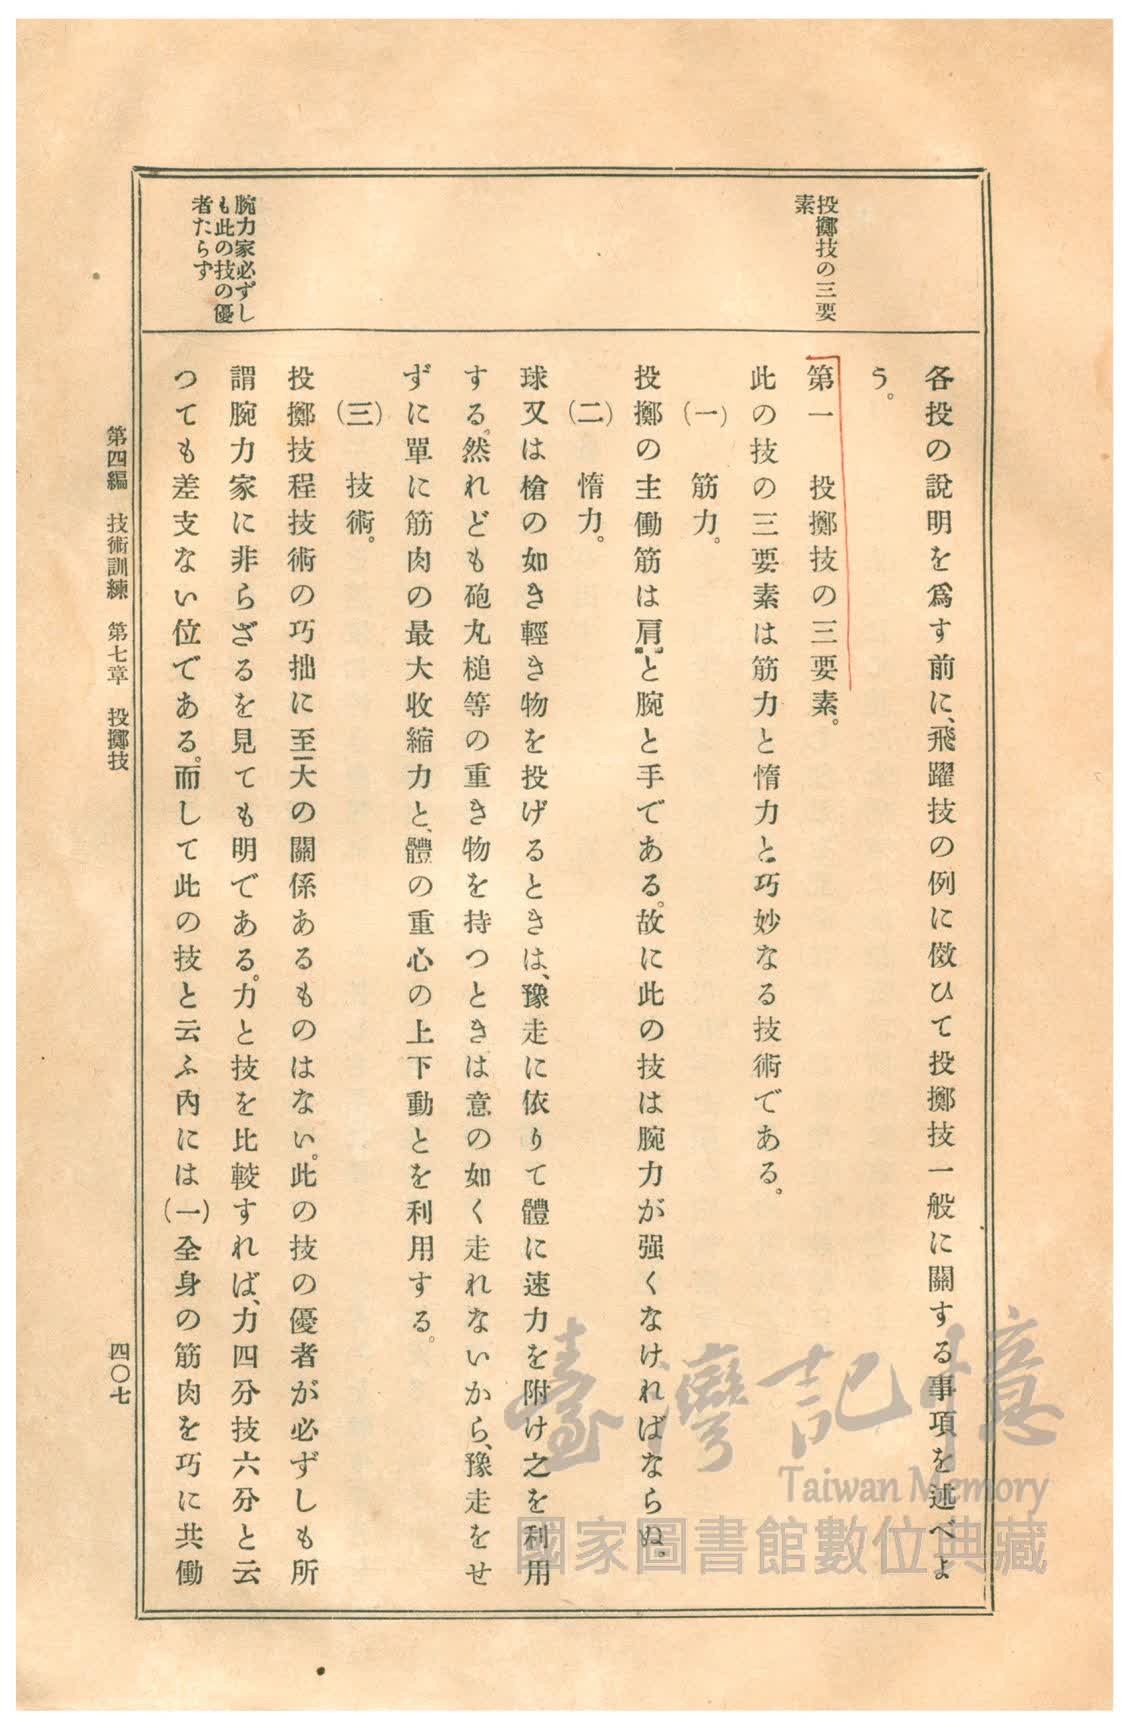 投擲技の三要
素
腕力家必ずし
も此の技の優
者たらず
各投の說明を爲す前に、飛躍技の例に倣ひて投擲技一般に關する事項を述べよ
う。
第一　投擲技の三要素。
此の技の三要素は筋力と惰力と巧妙なる技術である。
(一)　筋力。
投擲の主働筋は肩と腕と手である。故に此の技は腕力が强くなければならぬ。
(二)　惰力。
球又は槍の如き輕き物を投げるときは、豫走に依りて體に速力を附け之を利用
する。然れども砲丸槌等の重き物を持つときは意の如く走れないから、豫走をせ
ずに單に筋肉の最大收縮力と、體の重心の上下動とを利用する。
(三)　技術。
投擲技程技術の巧拙に至大の關係あるものはない。此の技の優者が必ずしも所
謂腕力家に非らざるを見ても明である。力と技を比較すれば、力四分技六分と云
つても差支ない位である。而して此の技と云ふ內には(一)全身の筋肉を巧に共働
第四編　技術訓練　第七章　投擲技
四〇七
臺灣記憶
Taiwan Memory
國家圖書館數位典藏